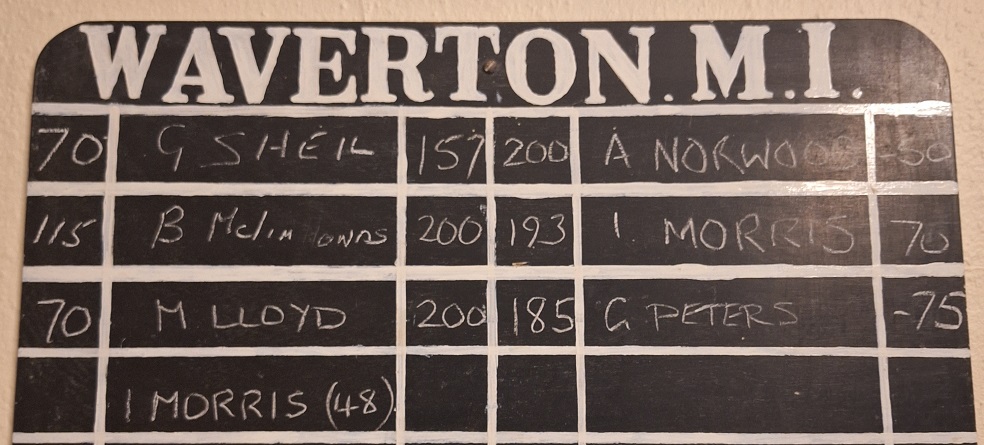 WAVERTON.M.I.
70 G SHEIL 157 200 A NORWOOD -50
115 B 200 193 I MORRIS 70
70 M LLOYD 200 185 G PETERS -75
I MORRIS (48)